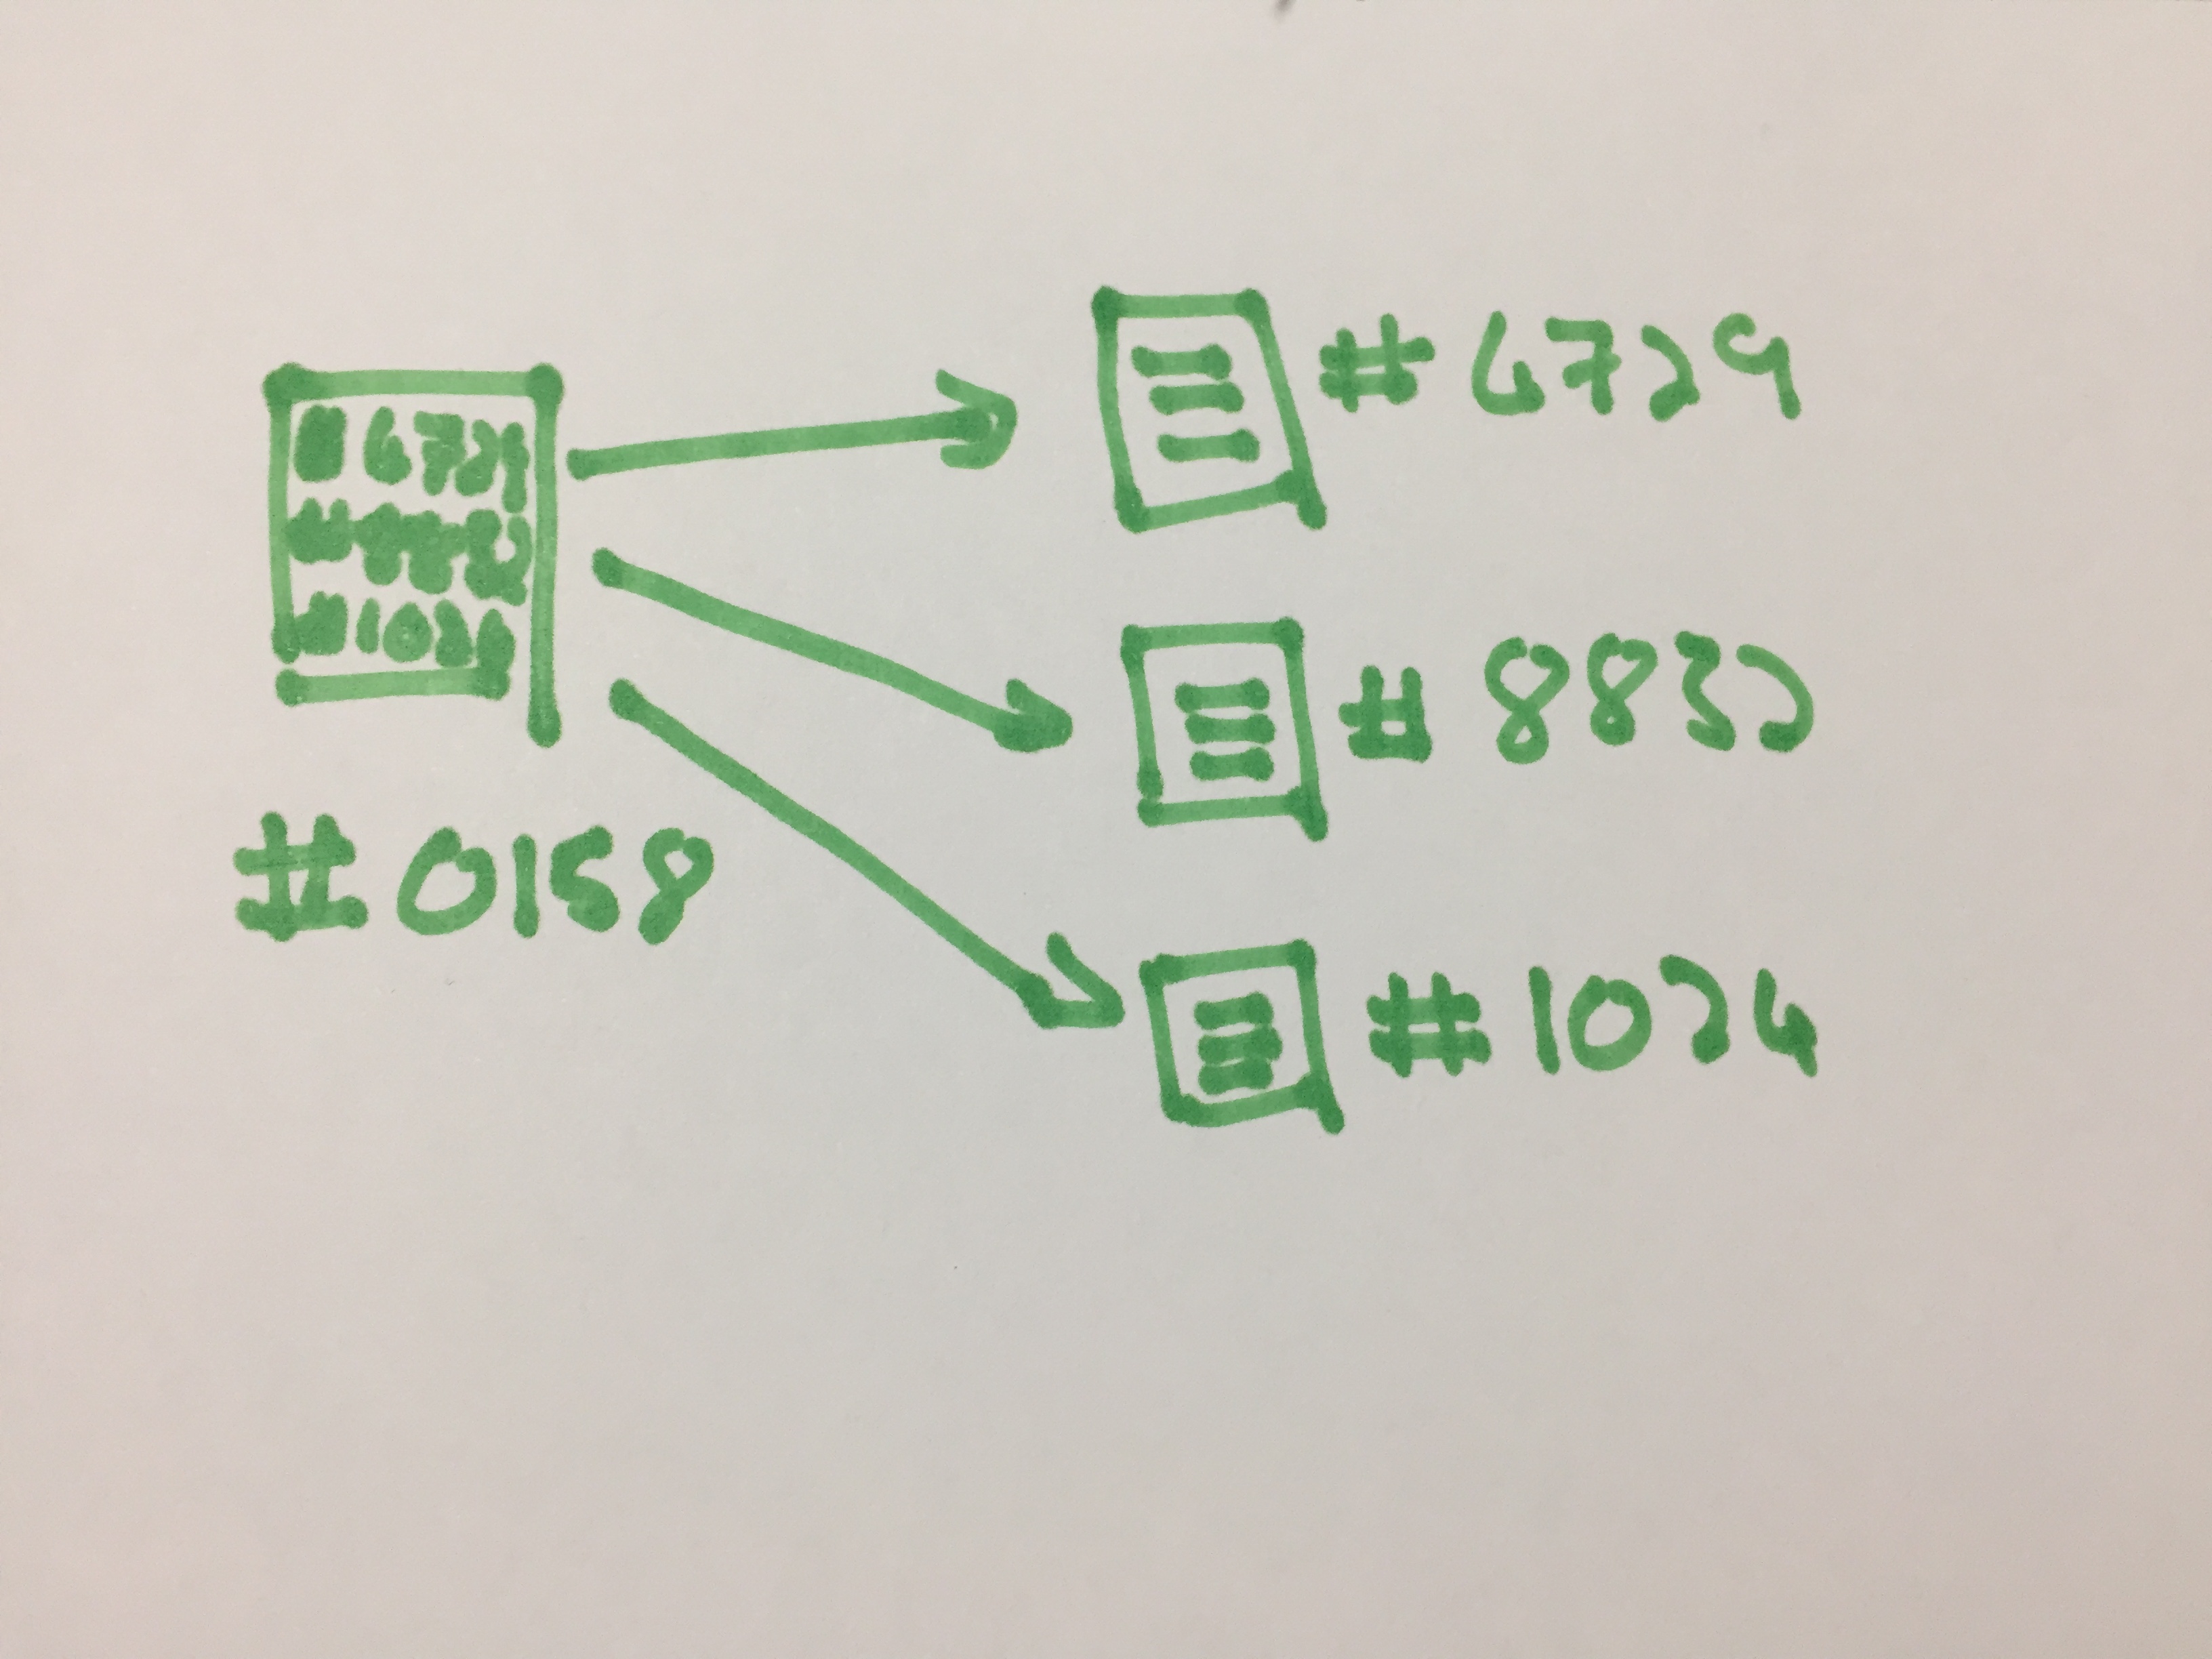 #4729
#8832
#1024
#0158
#4729
#8832
#1024